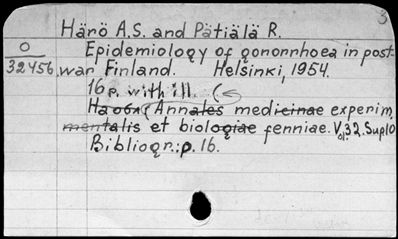 3
Härö A.S. and Pätiälä R.
O
32456
Epidemiology of gonorrhoea in post-
war Finland. Helsinki, 1954.
16 p. with ill. (
На обл (Annales medicinae experim
mentalis et biologiae fenniae. Vol. 32. Supl 0
Bibliogr.: p. 16.